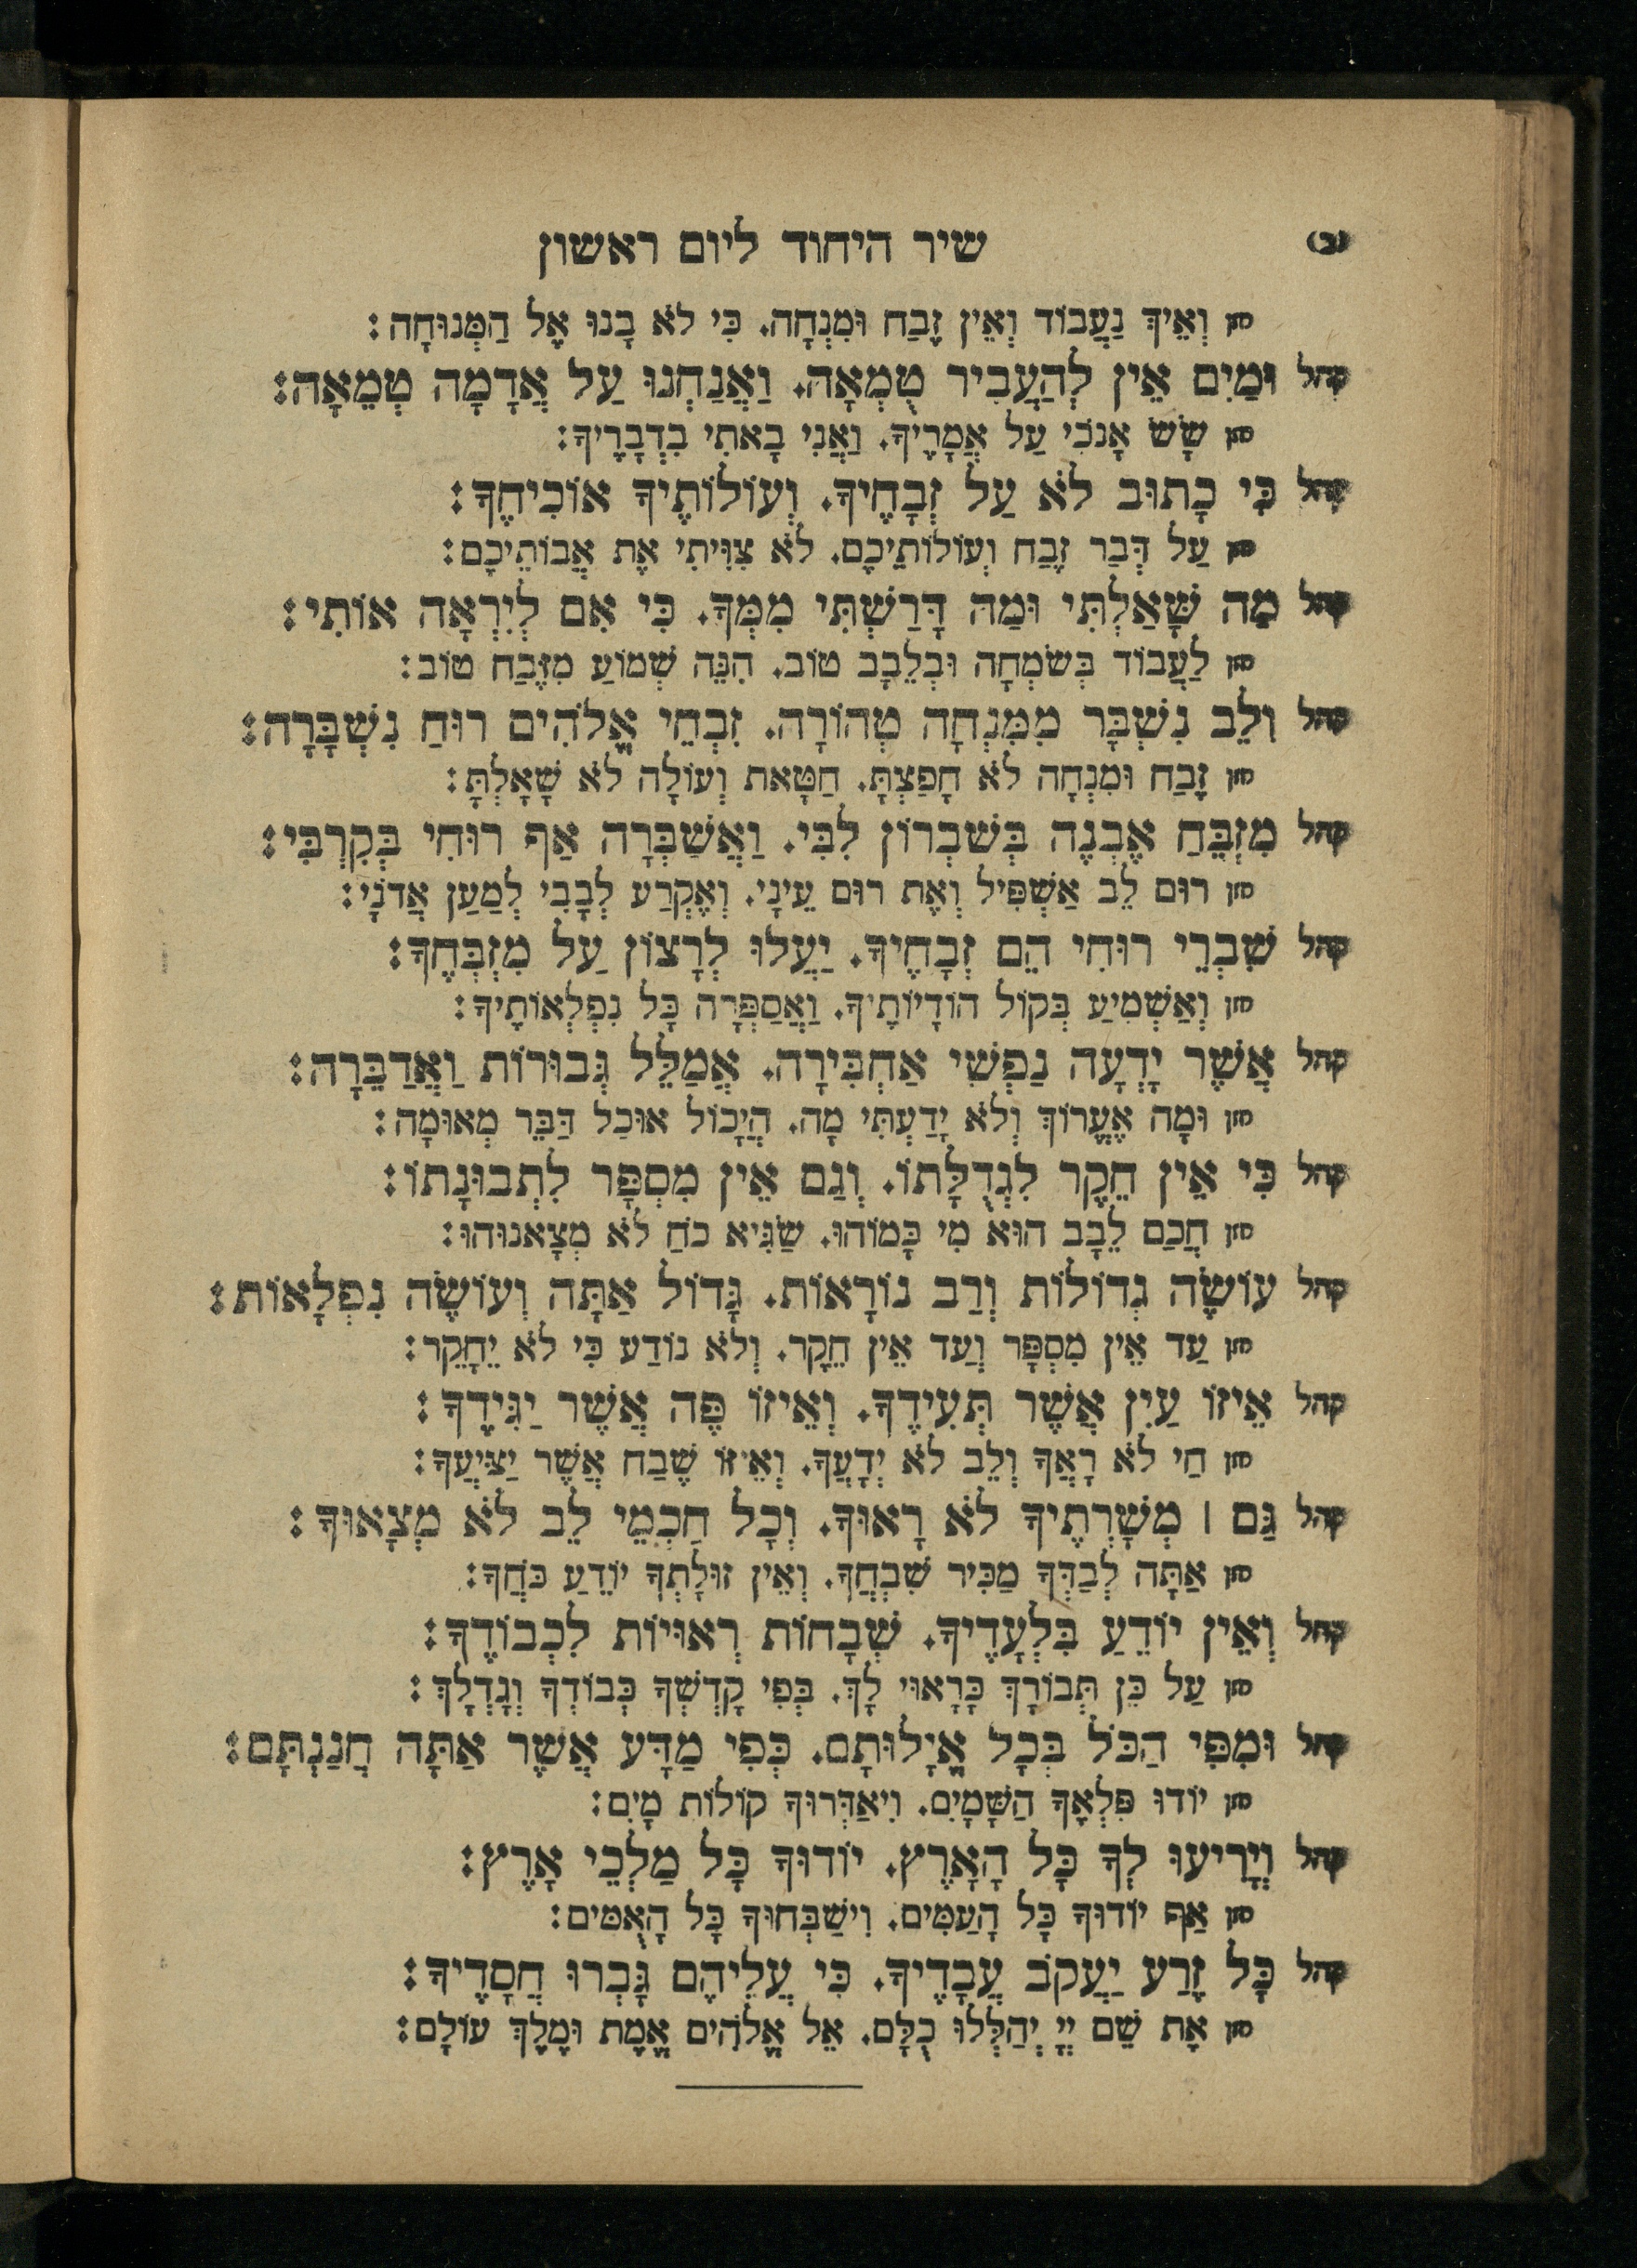 (ב) שיר היחוד ליום ראשון
חזן וְאֵיךְ נַעֲבוֹד וְאֵין זֶבַח וּמִנְחָה. כִּי לֹא בָנוּ אֶל הַמְּנוּחָה:
קהל וּמַיִם אֵין לְהַעֲבִיר טֻמְאָה. וַאֲנַחְנוּ עַל אֲדָמָה טְמֵאָה:
חזן שָׂשׂ אָנֹכִי עַל אֲמָרֶיךָ. וַאֲנִי בָאתִי בִדְבָרֶיךָ:
קהל כִּי כָתוּב לֹא עַל זְבָחֶיךָ. וְעוֹלוֹתֶיךָ אוֹכִיחֶךָ:
חזן עַל דְּבַר זֶבַח וְעוֹלוֹתֵיכֶם. לֹא צִוִּיתִי אֶת אֲבוֹתֵיכֶם:
קהל מָה שָּׁאַלְתִּי וּמַה דָּרַשְׁתִּי מִמְּךָ. כִּי אִם לְיִרְאָה אוֹתִי:
חזן לַעֲבוֹד בְּשִׂמְחָה וּבְלֵבָב טוֹב. הִנֵּה שְׁמוֹעַ מִזֶּבַח טוֹב:
קהל וְלֵב נִשְׁבָּר מִמִּנְחָה טְהוֹרָה. זִבְחֵי אֱלֹהִים רוּחַ נִשְׁבָּרָה:
חזן זֶבַח וּמִנְחָה לֹא חָפַצְתָּ. חַטָּאת וְעוֹלָה לֹא שָׁאָלְתָּ:
קהל מִזְבֵּחַ אֶבְנֶה בְּשִׁבְרוֹן לִבִּי. וַאֲשַׁבְּרָה אַף רוּחִי בְּקִרְבִּי:
חזן רוּם לֵב אַשְׁפִּיל וְאֶת רוּם עֵינָי. וְאֶקְרַע לְבָבִי לְמַעַן אֲדֹנָי:
קהל שִׁבְרֵי רוּחִי הֵם זְבָחֶיךָ. יַעֲלוּ לְרָצוֹן עַל מִזְבְּחֶךָ:
חזן וְאַשְׁמִיעַ בְּקוֹל הוֹדָיוֹתֶיךָ. וַאֲסַפְּרָה כָּל נִפְלְאוֹתֶיךָ:
קהל אֲשֶׁר יָדְעָה נַפְשִׁי אַחְבִּירָה. אֲמַלֵּל גְּבוּרוֹת וַאֲדַבֵּרָה:
חזן וּמָה אֶעֱרוֹךְ וְלֹא יָדַעְתִּי מָה. הֲיָכוֹל אוּכַל דַּבֵּר מְאוּמָה:
קהל כִּי אֵין חֵקֶר לִגְדֻלָּתוֹ. וְגַם אֵין מִסְפָּר לִתְבוּנָתוֹ:
חזן חֲכַם לֵבָב הוּא מִי כָּמוֹהוּ. שַׂגִּיא כֹחַ לֹא מְצָאנוּהוּ:
קהל עוֹשֶׂה גְדוֹלוֹת וְרַב נוֹרָאוֹת. גָּדוֹל אַתָּה וְעוֹשֶׂה נִפְלָאוֹת:
חזן עַד אֵין מִסְפָּר וְעַד אֵין חֵקֶר. וְלֹא נוֹדַע כִּי לֹא יֵחָקֵר:
קהל אֵיזוֹ עַיִן אֲשֶׁר תְּעִידֶךָ. וְאֵיזוֹ פֶּה אֲשֶׁר יַגִּידֶךָ:
חזן חַי לֹא רָאֲךָ וְלֵב לֹא יְדָעֲךָ. וְאֵיזוֹ שֶׁבַח אֲשֶׁר יַצִּיעֲךָ:
קהל גַּם ׀ מְשָׁרְתֶיךָ לֹא רָאוּךָ. וְכָל חַכְמֵי לֵב לֹא מְצָאוּךָ:
חזן אַתָּה לְבַדְּךָ מַכִּיר שִׁבְחֲךָ. וְאֵין זוּלָתְךָ יוֹדֵעַ כֹּחֲךָ:
קהל וְאֵין יוֹדֵעַ בִּלְעָדֶיךָ. שְׁבָחוֹת רְאוּיוֹת לִכְבוֹדֶךָ:
חזן עַל כֵּן תְּבוֹרָךְ כָּרָאוּי לָךְ. כְּפִי קָדְשְׁךָ כְּבוֹדְךָ וְגָדְלָךְ:
קהל וּמִפִּי הַכֹּל בְּכָל אֱיָלוּתָם. כְּפִי מַדָּע אֲשֶׁר אַתָּה חֲנַנְתָּם:
חזן יוֹדוּ פִּלְאֲךָ הַשָּׁמָיִם. וִיאַדְּרוּךָ קוֹלוֹת מָיִם:
קהל וְיָרִיעוּ לְךָ כָּל הָאָרֶץ. יוֹדוּךָ כָּל מַלְכֵי אָרֶץ:
חזן אַף יוֹדוּךָ כָּל הָעַמִּים. וִישַׁבְּחוּךָ כָּל הָאֻמִּים:
קהל כָּל זֶרַע יַעֲקֹב עֲבָדֶיךָ. כִּי עֲלֵיהֶם גָּבְרוּ חֲסָדֶיךָ:
חזן אֶת שֵׁם יְיָ יְהַלְלוּ כֻלָּם. אֵל אֱלֹהִים אֱמֶת וּמֶלֶךְ עוֹלָם: